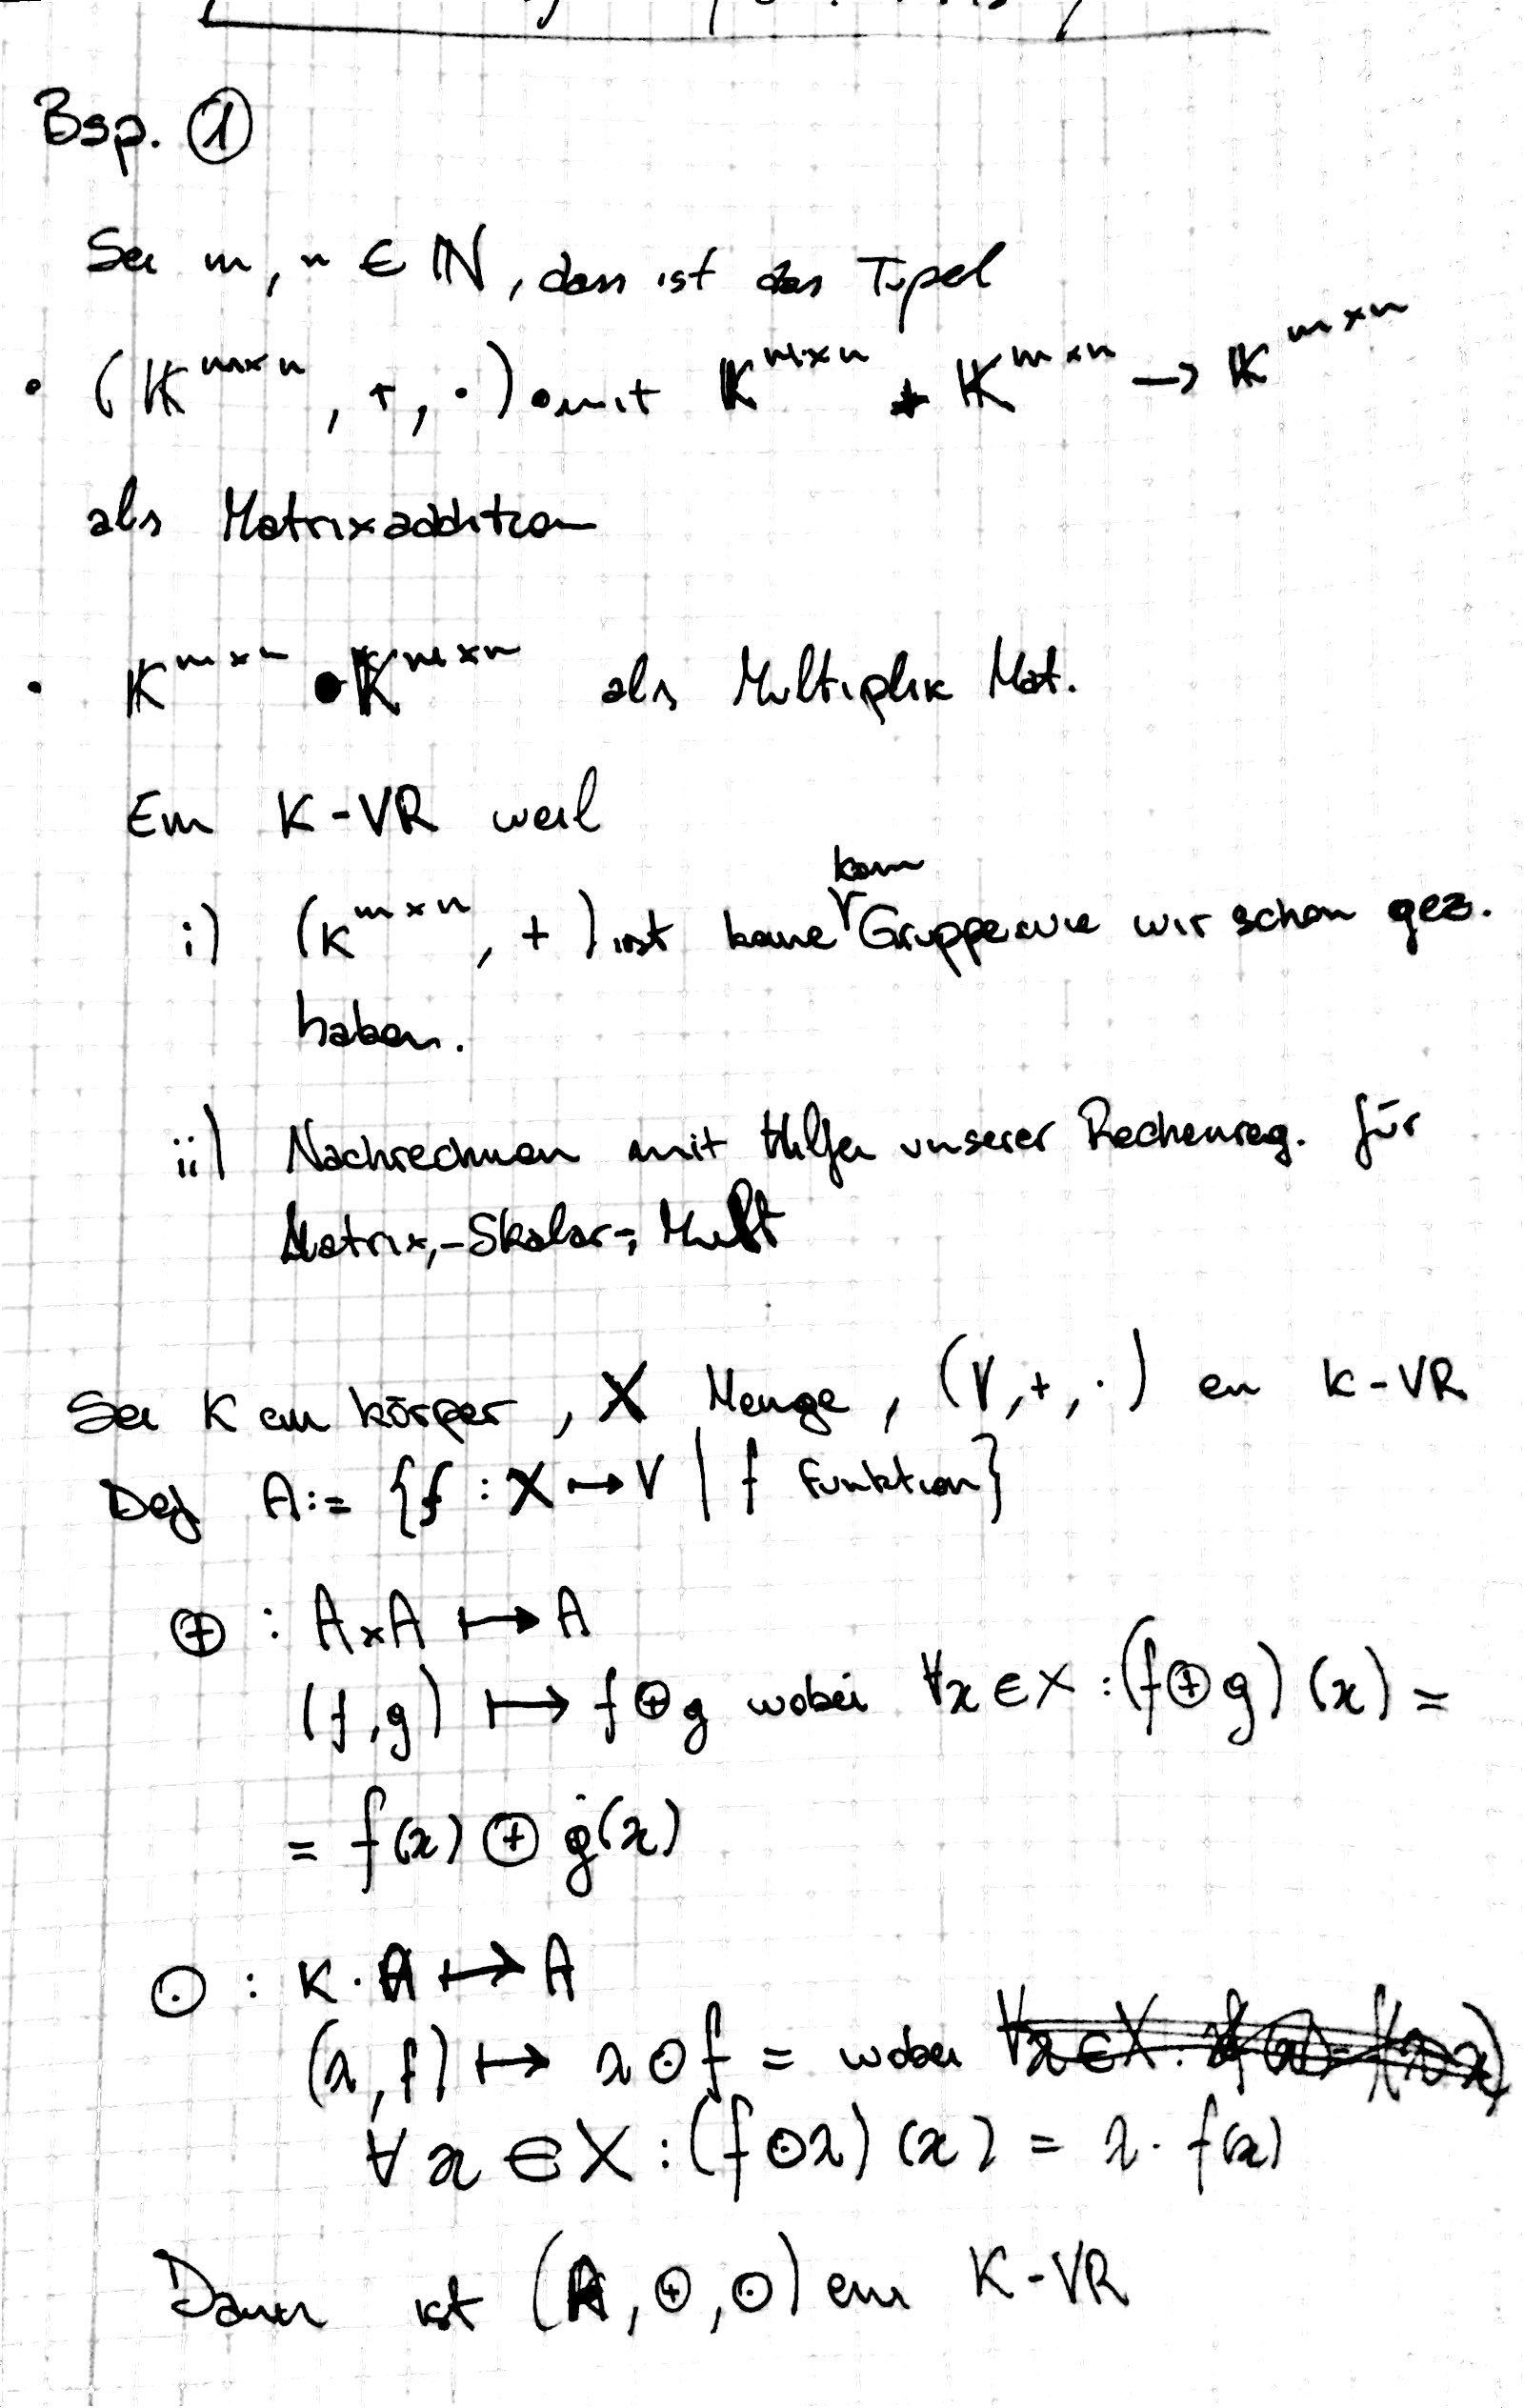 Bsp. ①
Sei m, n ∈ ℕ, dann ist das Tupel
• (𝕂^{m×n}, +, ·) mit 𝕂^{m×n} + 𝕂^{m×n} → 𝕂^{m×n}
als Matrixaddition
• 𝕂^{m×n} • 𝕂^{m×n} als Multiplik Mat.
Ein K-VR weil
kom
i) (K^{m×n}, +) ist keine Gruppe wie wir schon gez.
haben.
ii) Nachrechnen mit Hilfe unserer Rechenreg. für
Matrix,-Skalar-, Mult
Sei K ein Körper, X Menge, (V, +, ·) ein K-VR
Def A := {f : X ↦ V | f Funktion}
⊕ : A×A ↦ A
(f, g) ↦ f ⊕ g wobei ∀x ∈ X : (f ⊕ g)(x) =
= f(x) ⊕ g(x)
⊙ : K · A ↦ A
(λ, f) ↦ λ ⊙ f = wobei
∀x ∈ X : (f ⊙ λ)(x) = λ · f(x)
Dann ist (A, ⊕, ⊙) ein K-VR